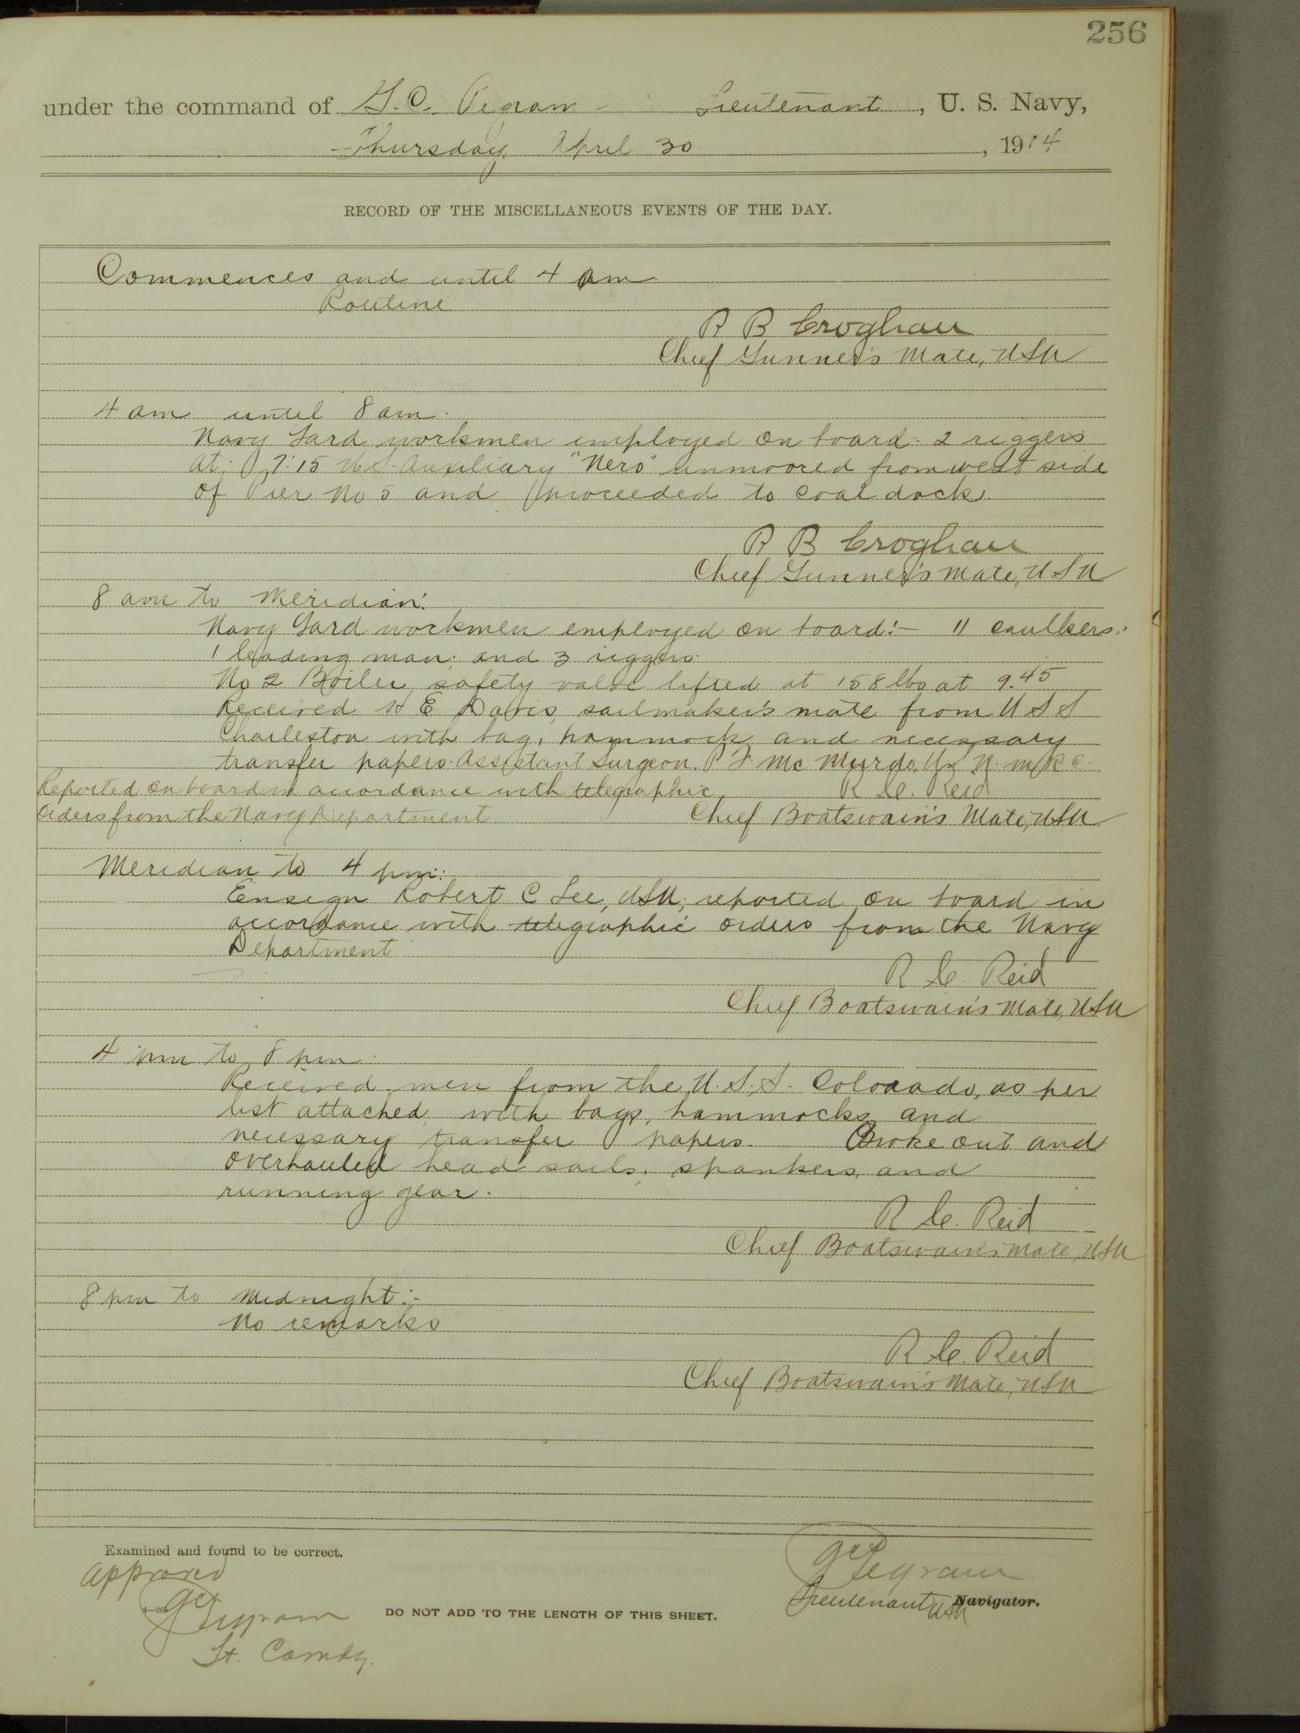 256
under the command of G. C. Pegram - Lieutenant, U. S. Navy,
Thursday April 30, 1914
RECORD OF THE MISCELLANEOUS EVENTS OF THE DAY.
Commences and until 4 am
Routine
R B Croghan
Chief Gunner's Mate, USN
4 am until 8 am.
Navy Yard workmen employed on board. 2 riggers
At 7:15 U.S. Auxiliary "Nero" unmoored from west side
of Pier No 5 and proceeded to coal dock.
R B Croghan
Chief Gunner's Mate, USN
8 am to Meridian:
Navy Yard workmen employed on board:- 11 caulkers.
1 leading man; and 3 riggers.
No 2 Boiler safety valve lifted at 158 lbs at 9.45
Received H E Davis, sailmaker's mate from U S S
Charleston with bag, hammock and necessary
transfer papers. Assistant Surgeon. P. J. McMurdo, U.S.N. M.R.C.
Reported on board in accordance with telegraphic
R C. Reid
orders from the Navy Department
Chief Boatswain's Mate, USN
Meridian to 4 pm:
Ensign Robert C Lee, USN, reported on board in
accordance with telegraphic orders from the Navy
Department
R C. Reid
Chief Boatswain's Mate, USN
4 pm to 8 pm
Received men from the U.S.S. Colorado, as per
list attached, with bags, hammocks and
necessary transfer papers. Broke out and
overhauled head sails, spankers, and
running gear.
R C. Reid
Chief Boatswain's Mate, USN
8 pm to Midnight:-
No remarks
R C. Reid
Chief Boatswain's Mate, USN
Examined and found to be correct.
Approved
GC Pegram
Lt. Comdg.
DO NOT ADD TO THE LENGTH OF THIS SHEET.
GC Pegram
Lieutenant USN Navigator.